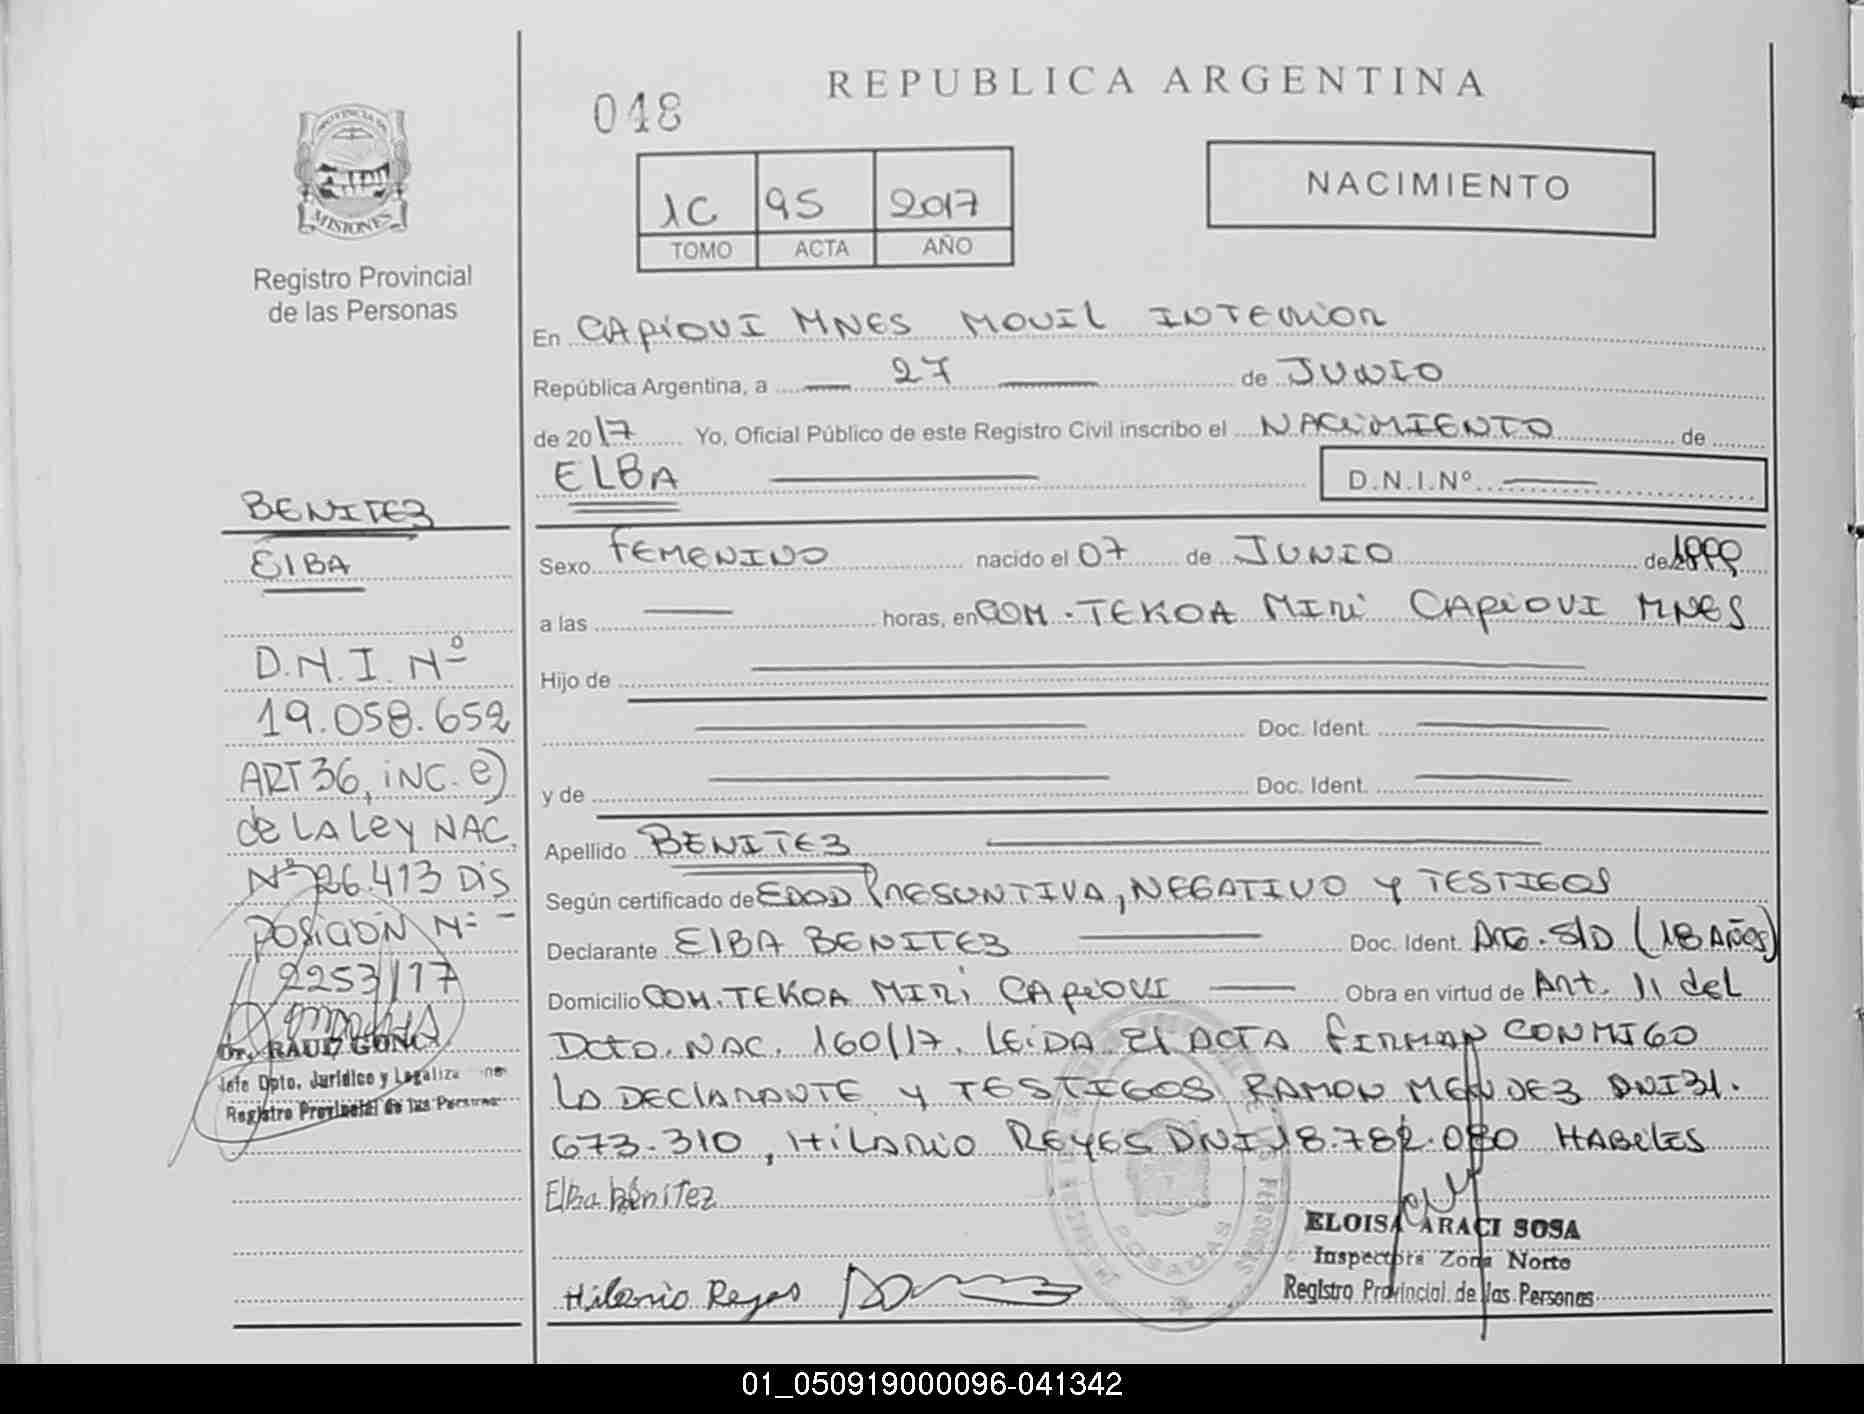 REPUBLICA ARGENTINA
048
NACIMIENTO
1C 95 2017
TOMO ACTA AÑO
PROVINCIA DE
MISIONES
Registro Provincial
de las Personas
En CAPIOVI MNES MOVIL INTERIOR
República Argentina, a 27 de JUNIO
de 2017 Yo, Oficial Público de este Registro Civil inscribo el NACIMIENTO de
ELBA D.N.I.Nº
Sexo FEMENINO nacido el 07 de JUNIO de 1999
a las horas, en COM. TEKOA MIRI CAPIOVI MNES
Hijo de
Doc. Ident.
y de Doc. Ident.
Apellido BENITEZ
Según certificado de EDAD PRESUNTIVA, NEGATIVO Y TESTIGOS
Declarante ELBA BENITEZ Doc. Ident. ARG. S/D (18 AÑOS)
Domicilio COM. TEKOA MIRI CAPIOVI Obra en virtud de Art. 11 del
Dcto. NAC. 160/17. LEIDA El ACTA FIRMAN CONMIGO
LA DECLARANTE Y TESTIGOS RAMON MENDEZ DNI 31.
673.310, HILARIO REYES DNI 18.782.080 HABILES
Elba benítez
ELOISA ARACI SOSA
Inspectora Zona Norte
Registro Provincial de las Personas
Hilario Reyes
POSADAS
BENITEZ
ElBA
D.N.I. Nº
19.058.652
ART 36, iNC. e)
de LA Ley NAC.
Nº 26.413 DIS
POSICION Nº -
2253/17
Dr. RAUL GON
Jefe Dpto. Jurídico y Legaliza
Registro Provincial de las Personas
01_050919000096-041342